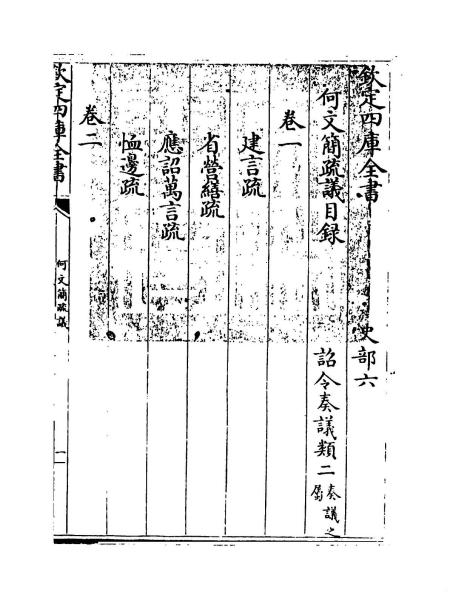 欽定四庫全書　史部六
何文簡疏議目録　詔令奏議類二奏議之屬
卷一
建言疏
省營繕疏
應詔萬言疏
恤邊疏
卷二
欽定四庫全書
何文簡疏議
一